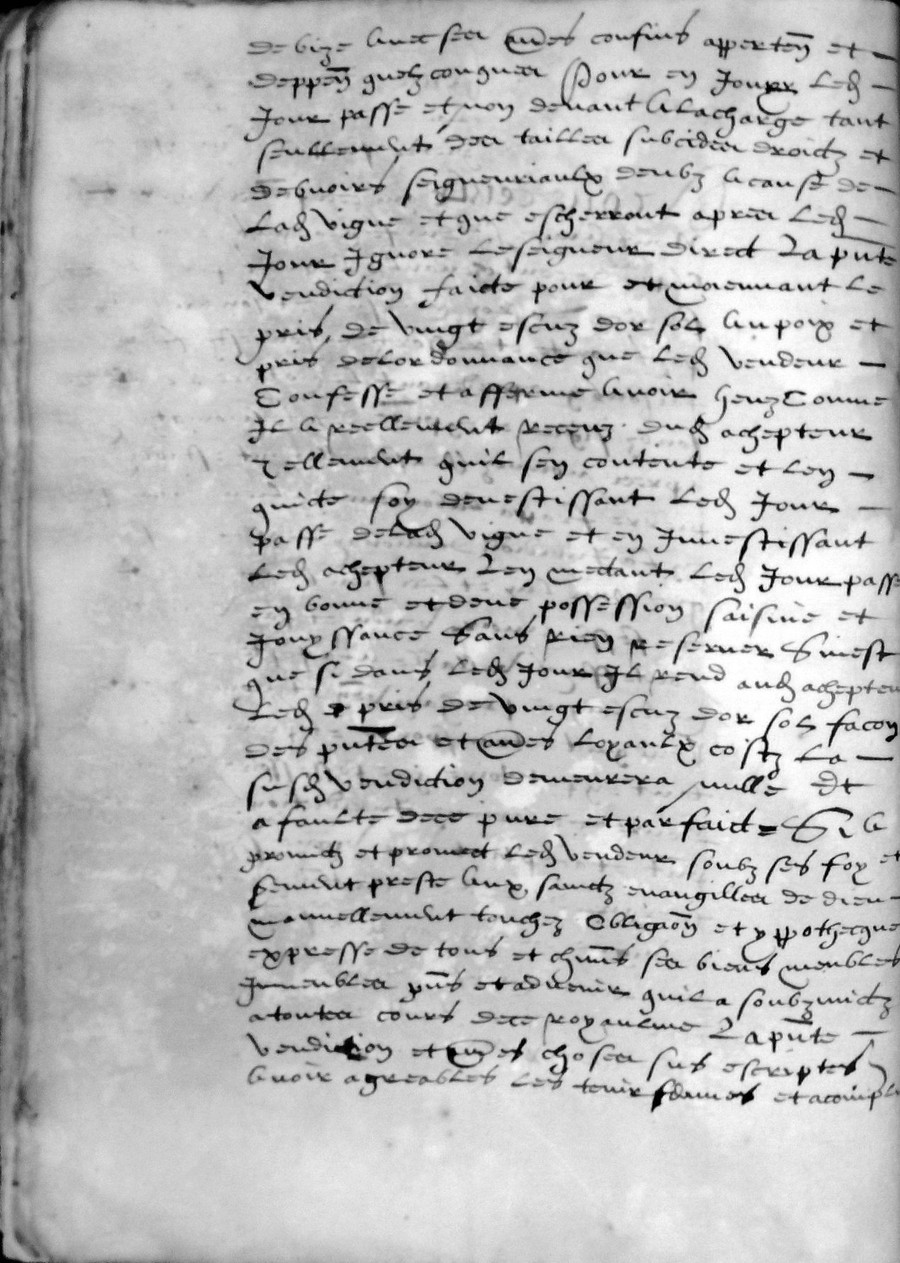 de bize avec ses aues confins apperten et
deppen quelzconques Pour en Jouyr led
Jour passe et non devant A la charge tant
seullement des tailles subcides droictz et
debvoirs seigneuriaulx deubz a cause de
lad vigne et que escherront apres led
Jour Ignore le seigneur direct La pnte
vendiction faicte pour et moiennant le
pris de vingt escuz dor sol au poix et
pris de lordonnance que led vendeur
Confesse et afferme avoir heuz Comme
Il a reellement receuz dud achepteur
Tellement quil sen contente et len
quicte soy devestissant led Jour
passe de lad vigne et en Investissant
led achepteur Len mectant led Jour passe
en bonne et deue possession saisine et
Jouyssance Sans rien reserver Sinest
que si dans led Jour Il rend aud achepteu
led pris de vingt escuz dor sol facon
des pntes et aues loyaulx costz la
susd vendiction demeurera nulle Et
a faulte de ce pure et parfaicte Si a
promis et promect led vendeur soubz ses foy et
serment preste aux sainctz evangilles de dieu
manuellement touchez Obligaon et ypothecque
expresse de tous et chuns ses biens meubles
Jmeubles pns et advenir quil a soubzmictz
a toutes cours de ce royaulme La pnte
vendiction et aues choses sus escriptes
avoir agreables les tenir et acompl